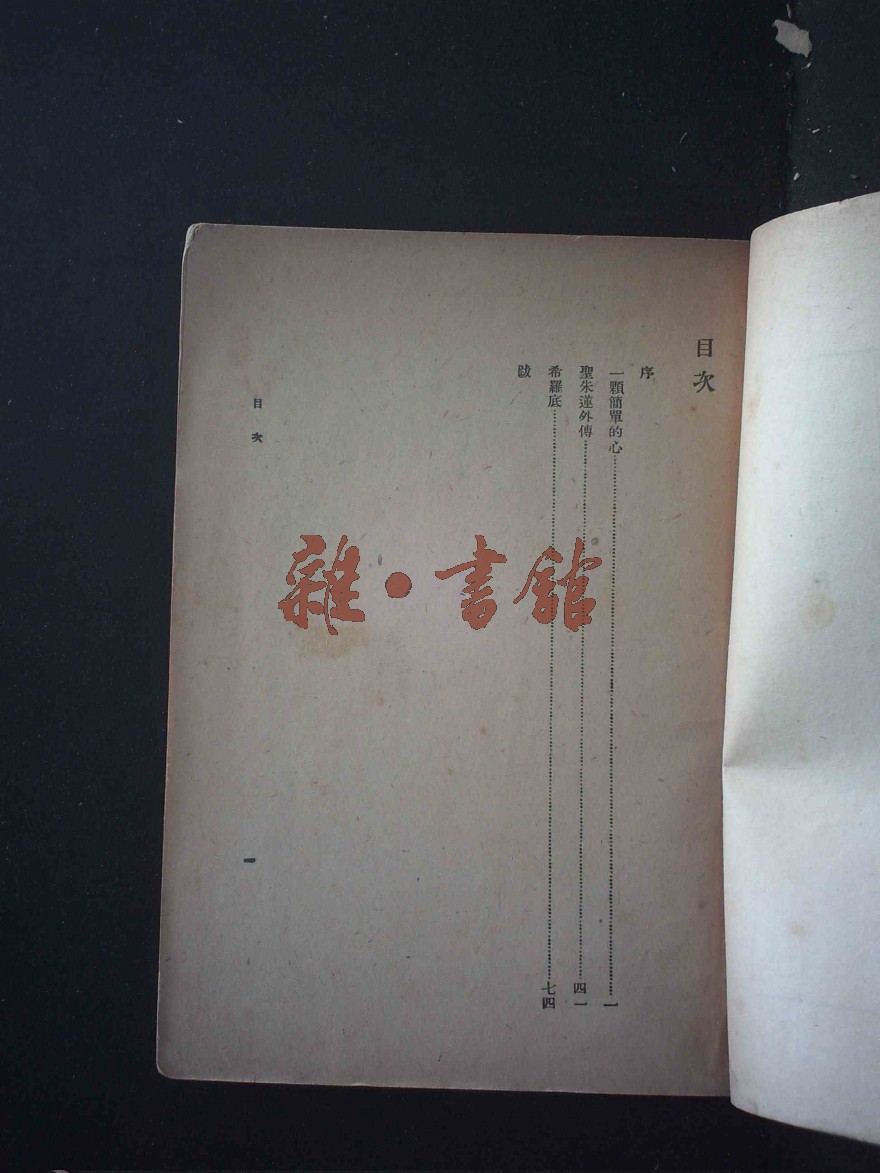 目次
序
一顆簡單的心……一
聖朱蓮外傳……四一
希羅底……七四
跋
目次
一
雜·書館